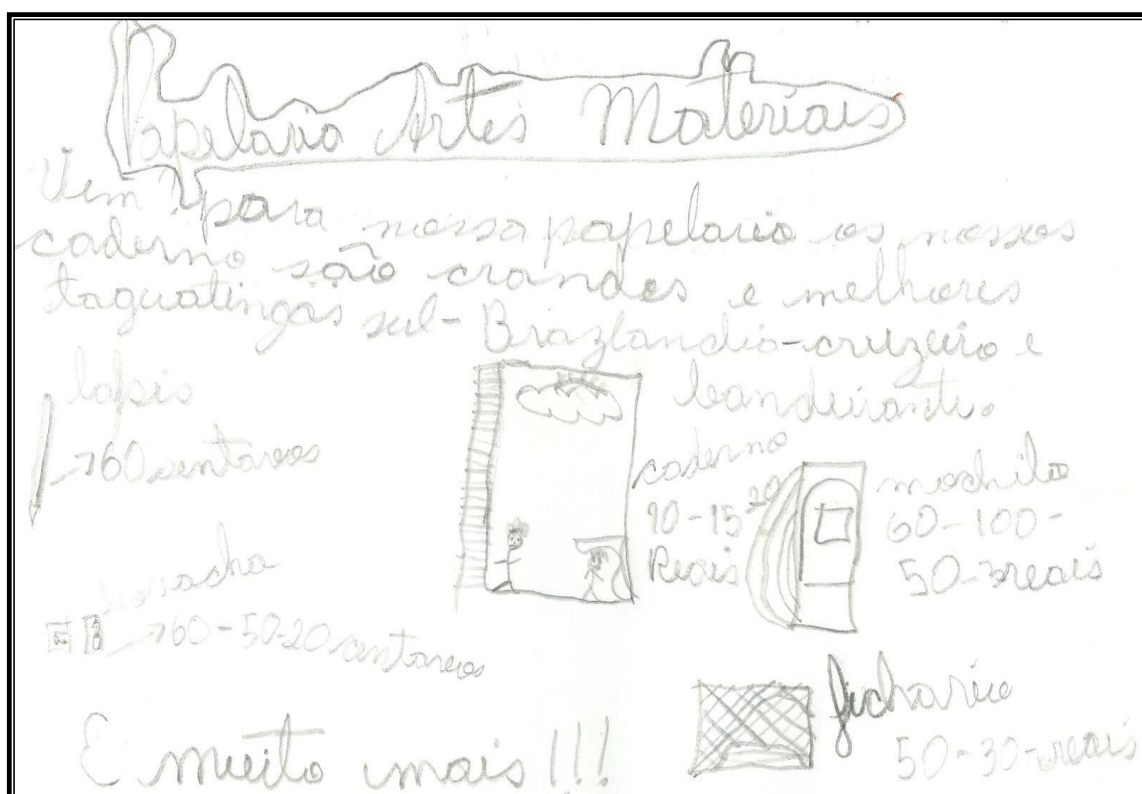 Papelaria Artes Materiais
Vem para nossa papelaria os nossos
caderno são crandes e melhores
taguatingas sul - Brazlandia - cruzeiro e
bandeirante.
lapis
60 sentavos
caderno
10 - 15 20
Reais
mochila
60 - 100 -
50 - 3reais
boracha
60 - 50 - 20 centavos
ficharico
50 - 30 - reais
E muito mais!!!